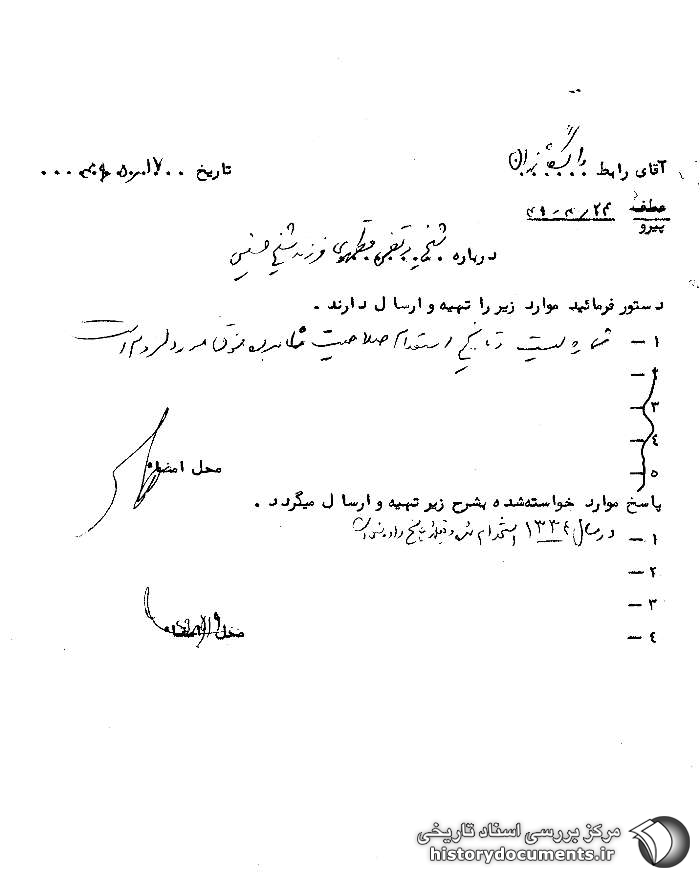 آقای رابط
تاریخ
عطف ۴۹-۳/۲۴
پیرو
درباره شیخ مرتضی مطهری فرزند شیخ حسین
دستور فرمائید موارد زیر را تهیه و ارسال دارند .
۱ – شماره لیست و تاریخ استخدام صلاحیت نامبرده فوق مورد لزوم است
۲ –
۳ –
٤ –
۵ –
محل امضاء
پاسخ موارد خواسته‌شده بشرح زیر تهیه و ارسال میگردد .
۱ – در سال ۱۳۳۴ استخدام شده و قبلا پاسخ داده شده است
۲ –
۳ –
٤ –
محل امضاء
مرکز بررسی اسناد تاریخی
historydocuments.ir